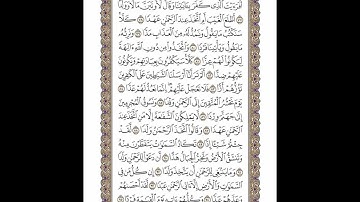 أَفَرَءَيْتَ ٱلَّذِى كَفَرَ بِـَٔايَٰتِنَا وَقَالَ لَأُوتَيَنَّ مَالًا وَوَلَدًا ٧٧
أَطَّلَعَ ٱلْغَيْبَ أَمِ ٱتَّخَذَ عِندَ ٱلرَّحْمَٰنِ عَهْدًا ٧٨ كَلَّا
سَنَكْتُبُ مَا يَقُولُ وَنَمُدُّ لَهُۥ مِنَ ٱلْعَذَابِ مَدًّا ٧٩ وَنَرِثُهُۥ
مَا يَقُولُ وَيَأْتِينَا فَرْدًا ٨٠ وَٱتَّخَذُوا۟ مِن دُونِ ٱللَّهِ ءَالِهَةً
لِّيَكُونُوا۟ لَهُمْ عِزًّا ٨١ كَلَّا سَيَكْفُرُونَ بِعِبَادَتِهِمْ وَيَكُونُونَ
عَلَيْهِمْ ضِدًّا ٨٢ أَلَمْ تَرَ أَنَّآ أَرْسَلْنَا ٱلشَّيَٰطِينَ عَلَى ٱلْكَٰفِرِينَ
تَؤُزُّهُمْ أَزًّا ٨٣ فَلَا تَعْجَلْ عَلَيْهِمْ إِنَّمَا نَعُدُّ لَهُمْ عَدًّا ٨٤
يَوْمَ نَحْشُرُ ٱلْمُتَّقِينَ إِلَى ٱلرَّحْمَٰنِ وَفْدًا ٨٥ وَنَسُوقُ ٱلْمُجْرِمِينَ
إِلَىٰ جَهَنَّمَ وِرْدًا ٨٦ لَّا يَمْلِكُونَ ٱلشَّفَٰعَةَ إِلَّا مَنِ ٱتَّخَذَ عِندَ
ٱلرَّحْمَٰنِ عَهْدًا ٨٧ وَقَالُوا۟ ٱتَّخَذَ ٱلرَّحْمَٰنُ وَلَدًا ٨٨ لَّقَدْ
جِئْتُمْ شَيْـًٔا إِدًّا ٨٩ تَكَادُ ٱلسَّمَٰوَٰتُ يَتَفَطَّرْنَ مِنْهُ
وَتَنشَقُّ ٱلْأَرْضُ وَتَخِرُّ ٱلْجِبَالُ هَدًّا ٩٠ أَن دَعَوْا۟ لِلرَّحْمَٰنِ وَلَدًا ٩١
وَمَا يَنۢبَغِى لِلرَّحْمَٰنِ أَن يَتَّخِذَ وَلَدًا ٩٢ إِن كُلُّ مَن فِى
ٱلسَّمَٰوَٰتِ وَٱلْأَرْضِ إِلَّآ ءَاتِى ٱلرَّحْمَٰنِ عَبْدًا ٩٣ لَّقَدْ أَحْصَىٰهُمْ
وَعَدَّهُمْ عَدًّا ٩٤ وَكُلُّهُمْ ءَاتِيهِ يَوْمَ ٱلْقِيَٰمَةِ فَرْدًا ٩٥